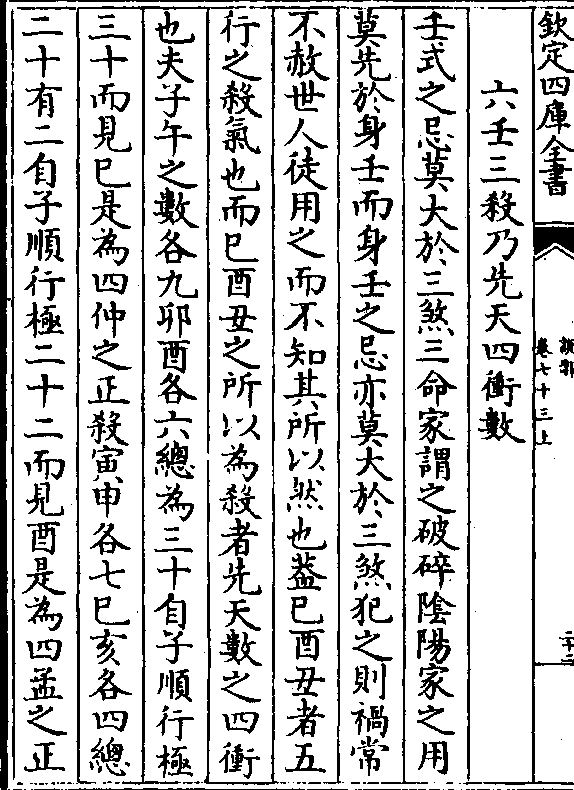 欽定四庫全書
說郛
卷七十三上
二十二
六壬三殺乃先天四衝數
壬式之忌莫大於三煞三命家謂之破碎陰陽家之用
莫先於身壬而身壬之忌亦莫大於三煞犯之則禍常
不赦世人徒用之而不知其所以然也葢巳酉丑者五
行之殺氣也而巳酉丑之所以為殺者先天數之四衝
也夫子午之數各九卯酉各六總為三十自子順行極
三十而見巳是為四仲之正殺寅申各七巳亥各四總
二十有二自子順行極二十二而見酉是為四孟之正